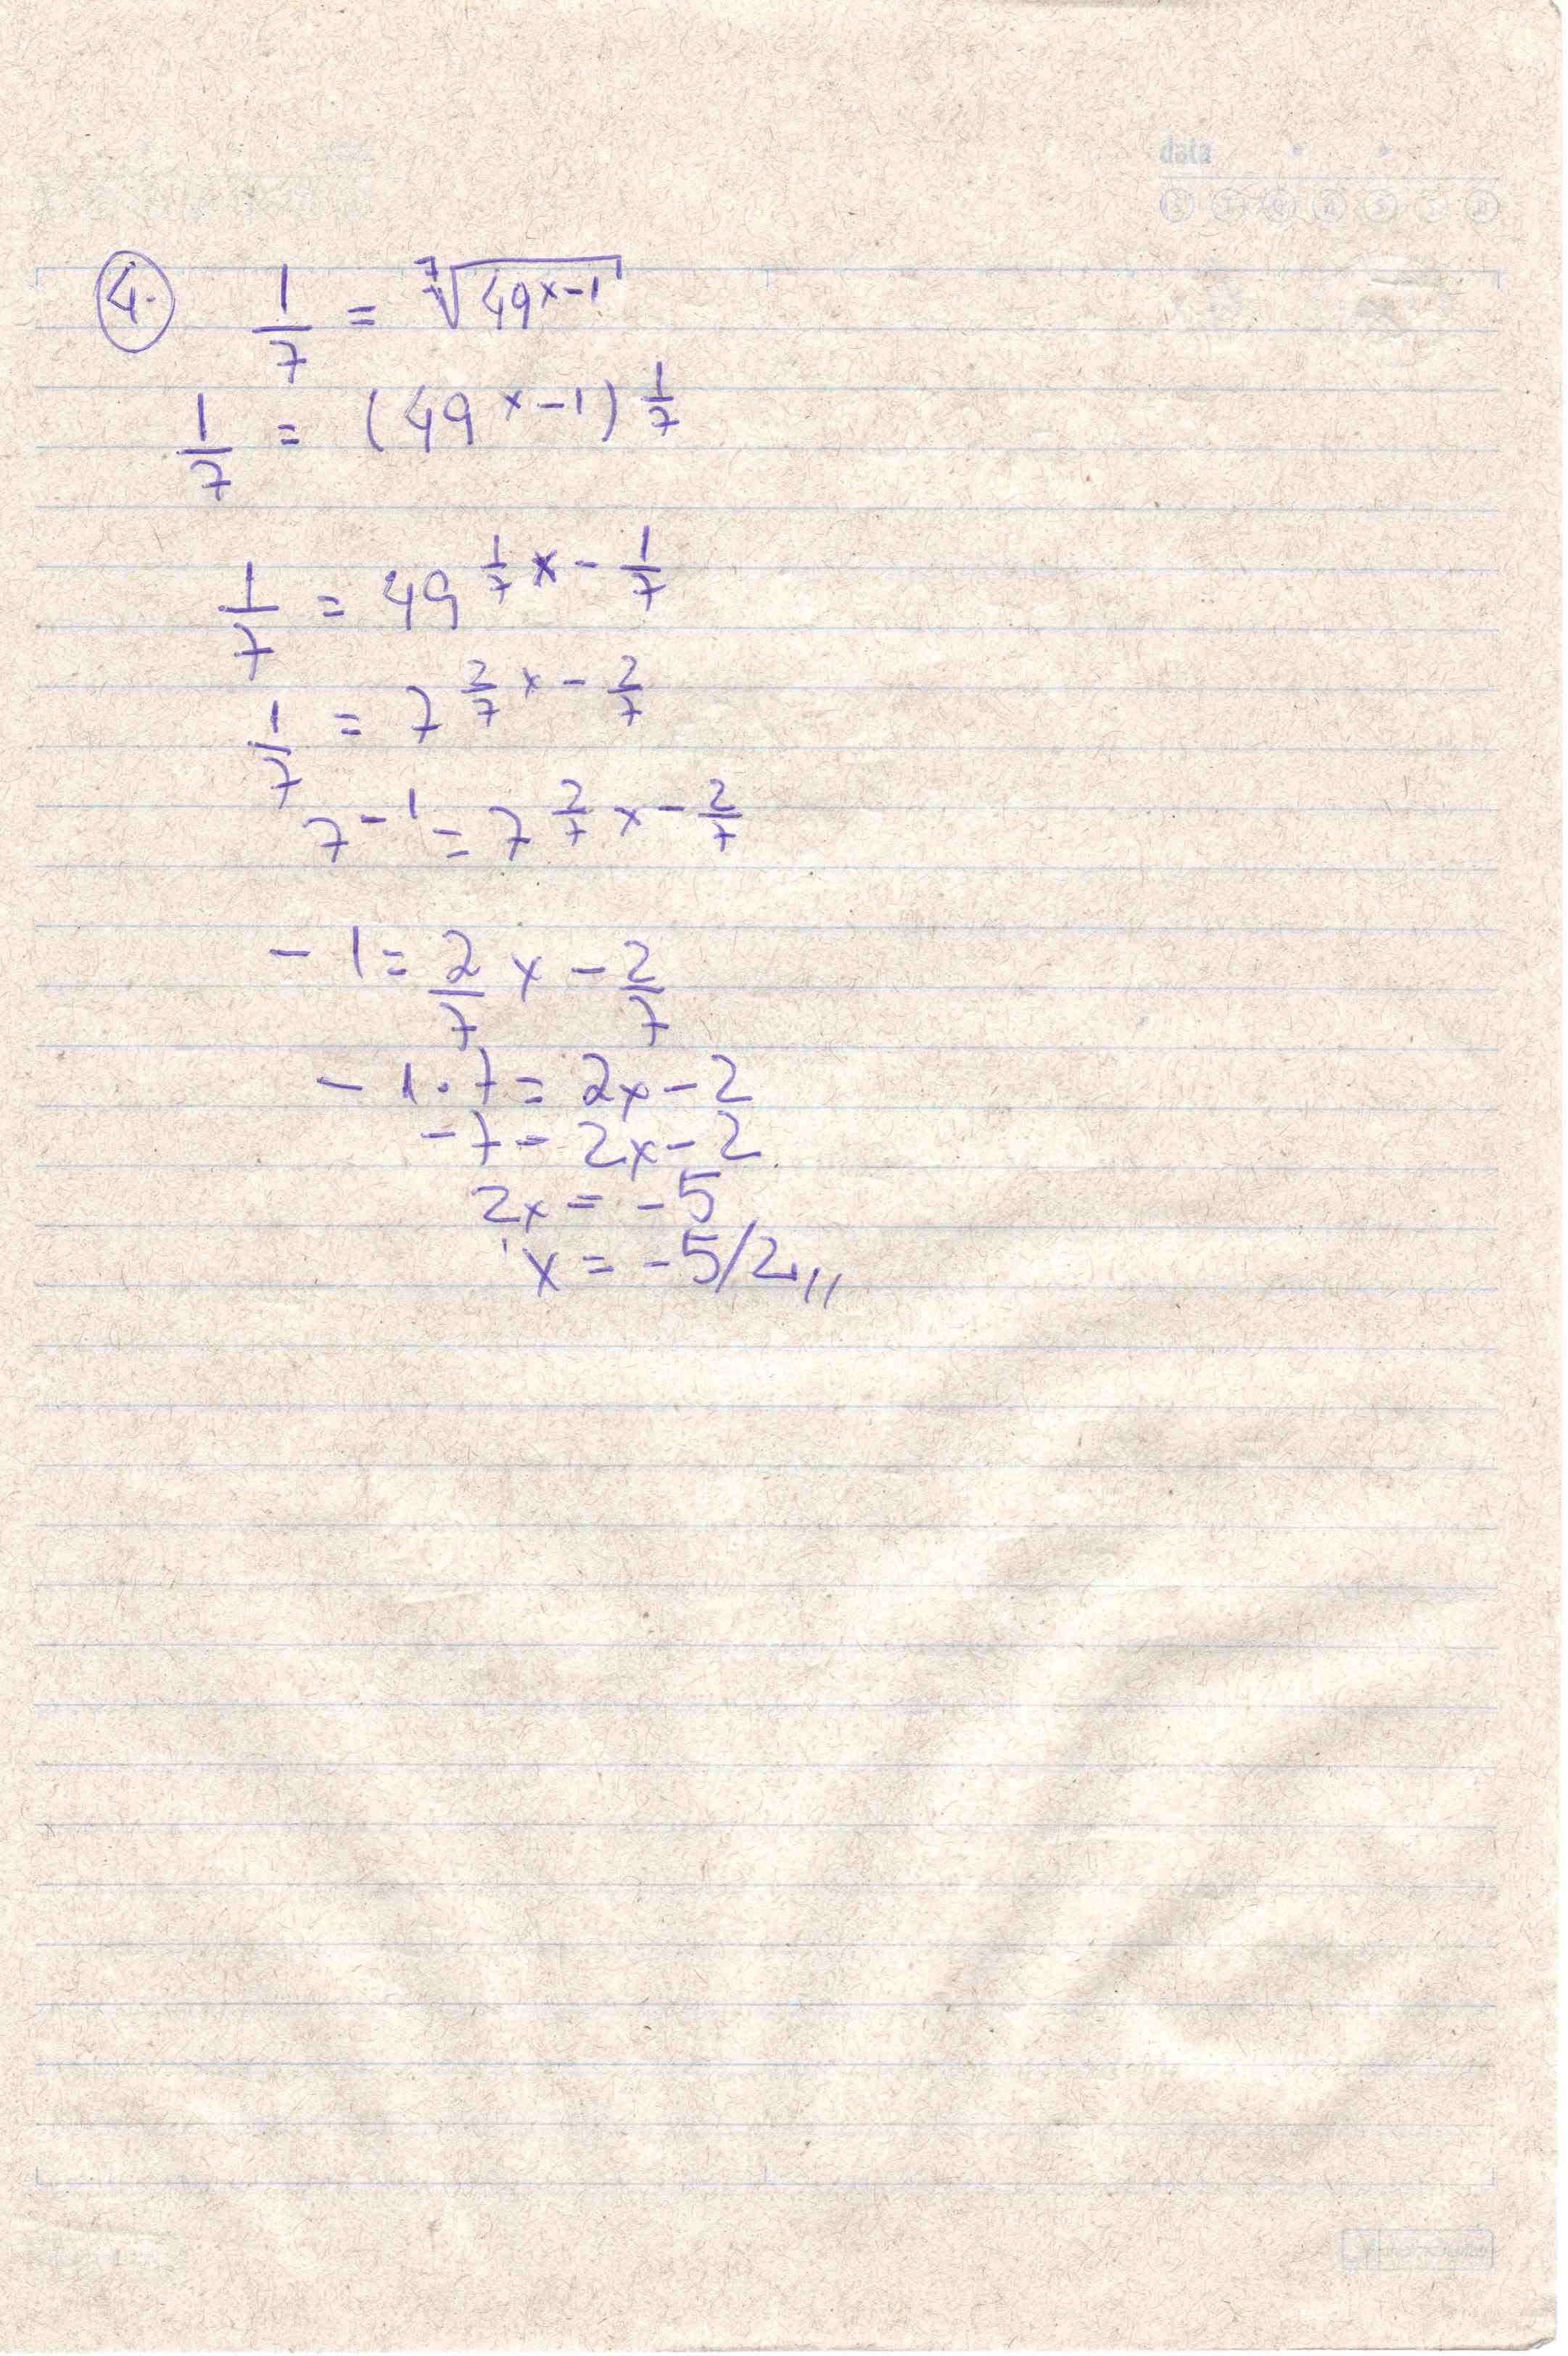 data
4. 1/7 = ⁷√(49^(x-1))
1/7 = (49^(x-1))^(1/7)
1/7 = 49^(1/7 x - 1/7)
1/7 = 7^(2/7 x - 2/7)
7^(-1) = 7^(2/7 x - 2/7)
-1 = 2/7 x - 2/7
-1·7 = 2x-2
-7 = 2x-2
2x = -5
x = -5/2,,